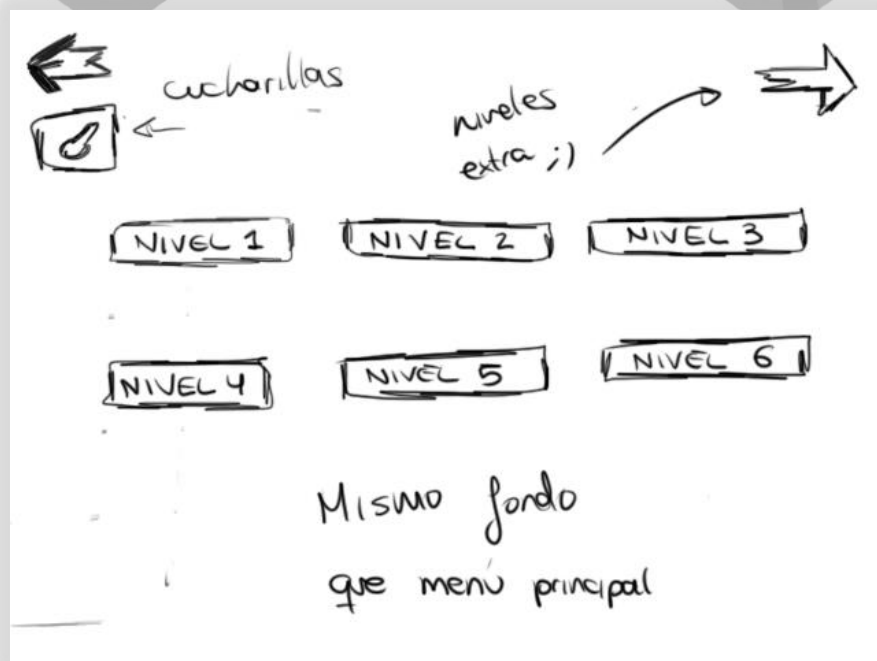 cucharillas
niveles
extra ;)
NIVEL 1
NIVEL 2
NIVEL 3
NIVEL 4
NIVEL 5
NIVEL 6
Mismo fondo
que menú principal